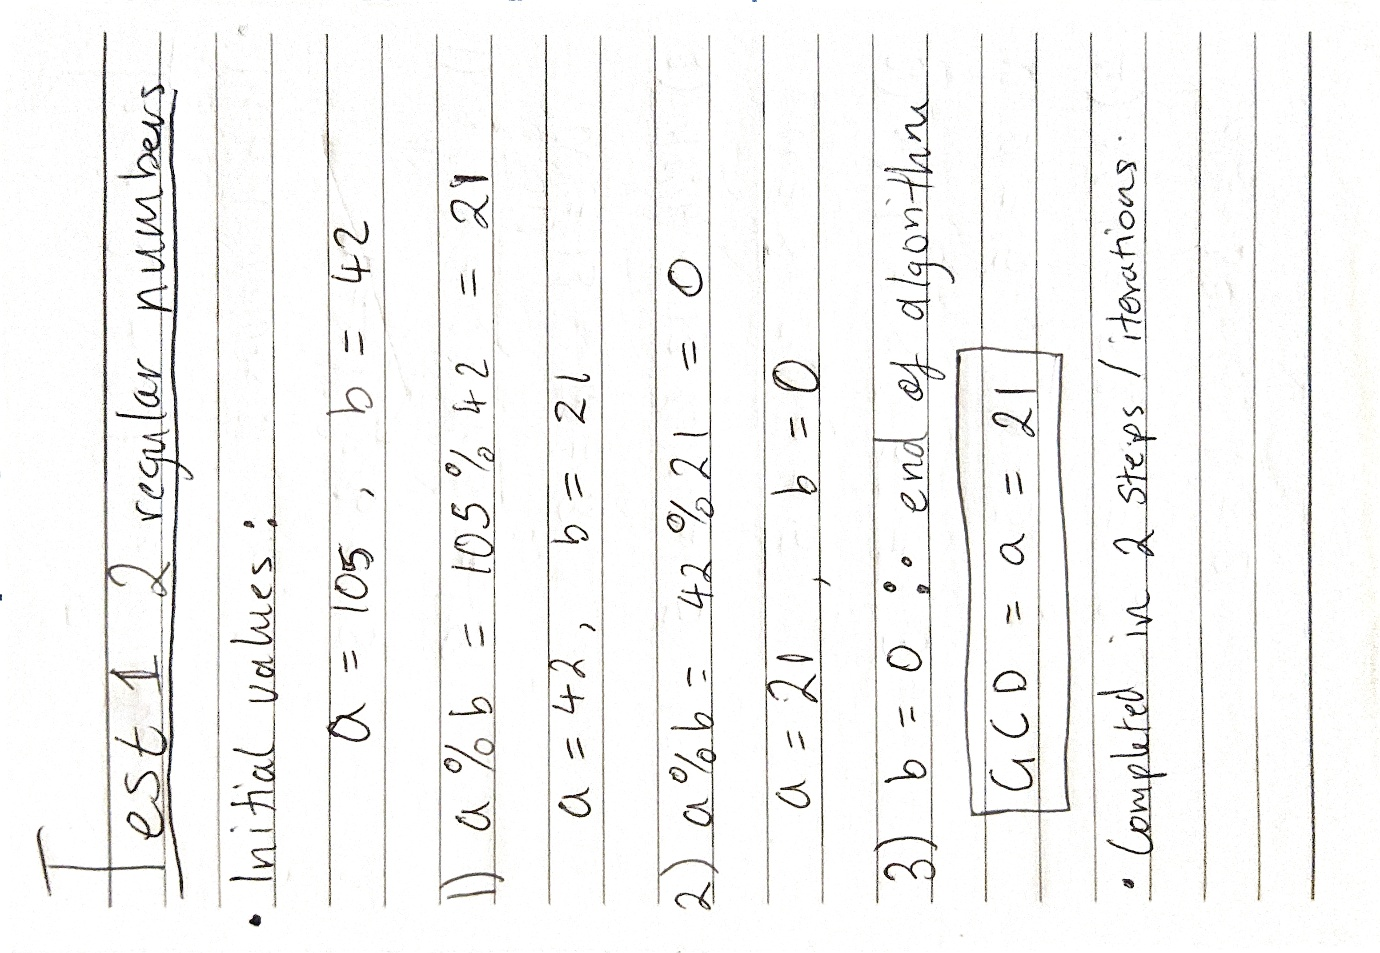 Test 1 2 regular numbers
• Initial values:
a = 105 , b = 42
1) a % b = 105 % 42 = 21
a = 42, b = 21
2) a % b = 42 % 21 = 0
a = 21 , b = 0
3) b = 0 ∴ end of algorithm
GCD = a = 21
• Completed in 2 steps / iterations.